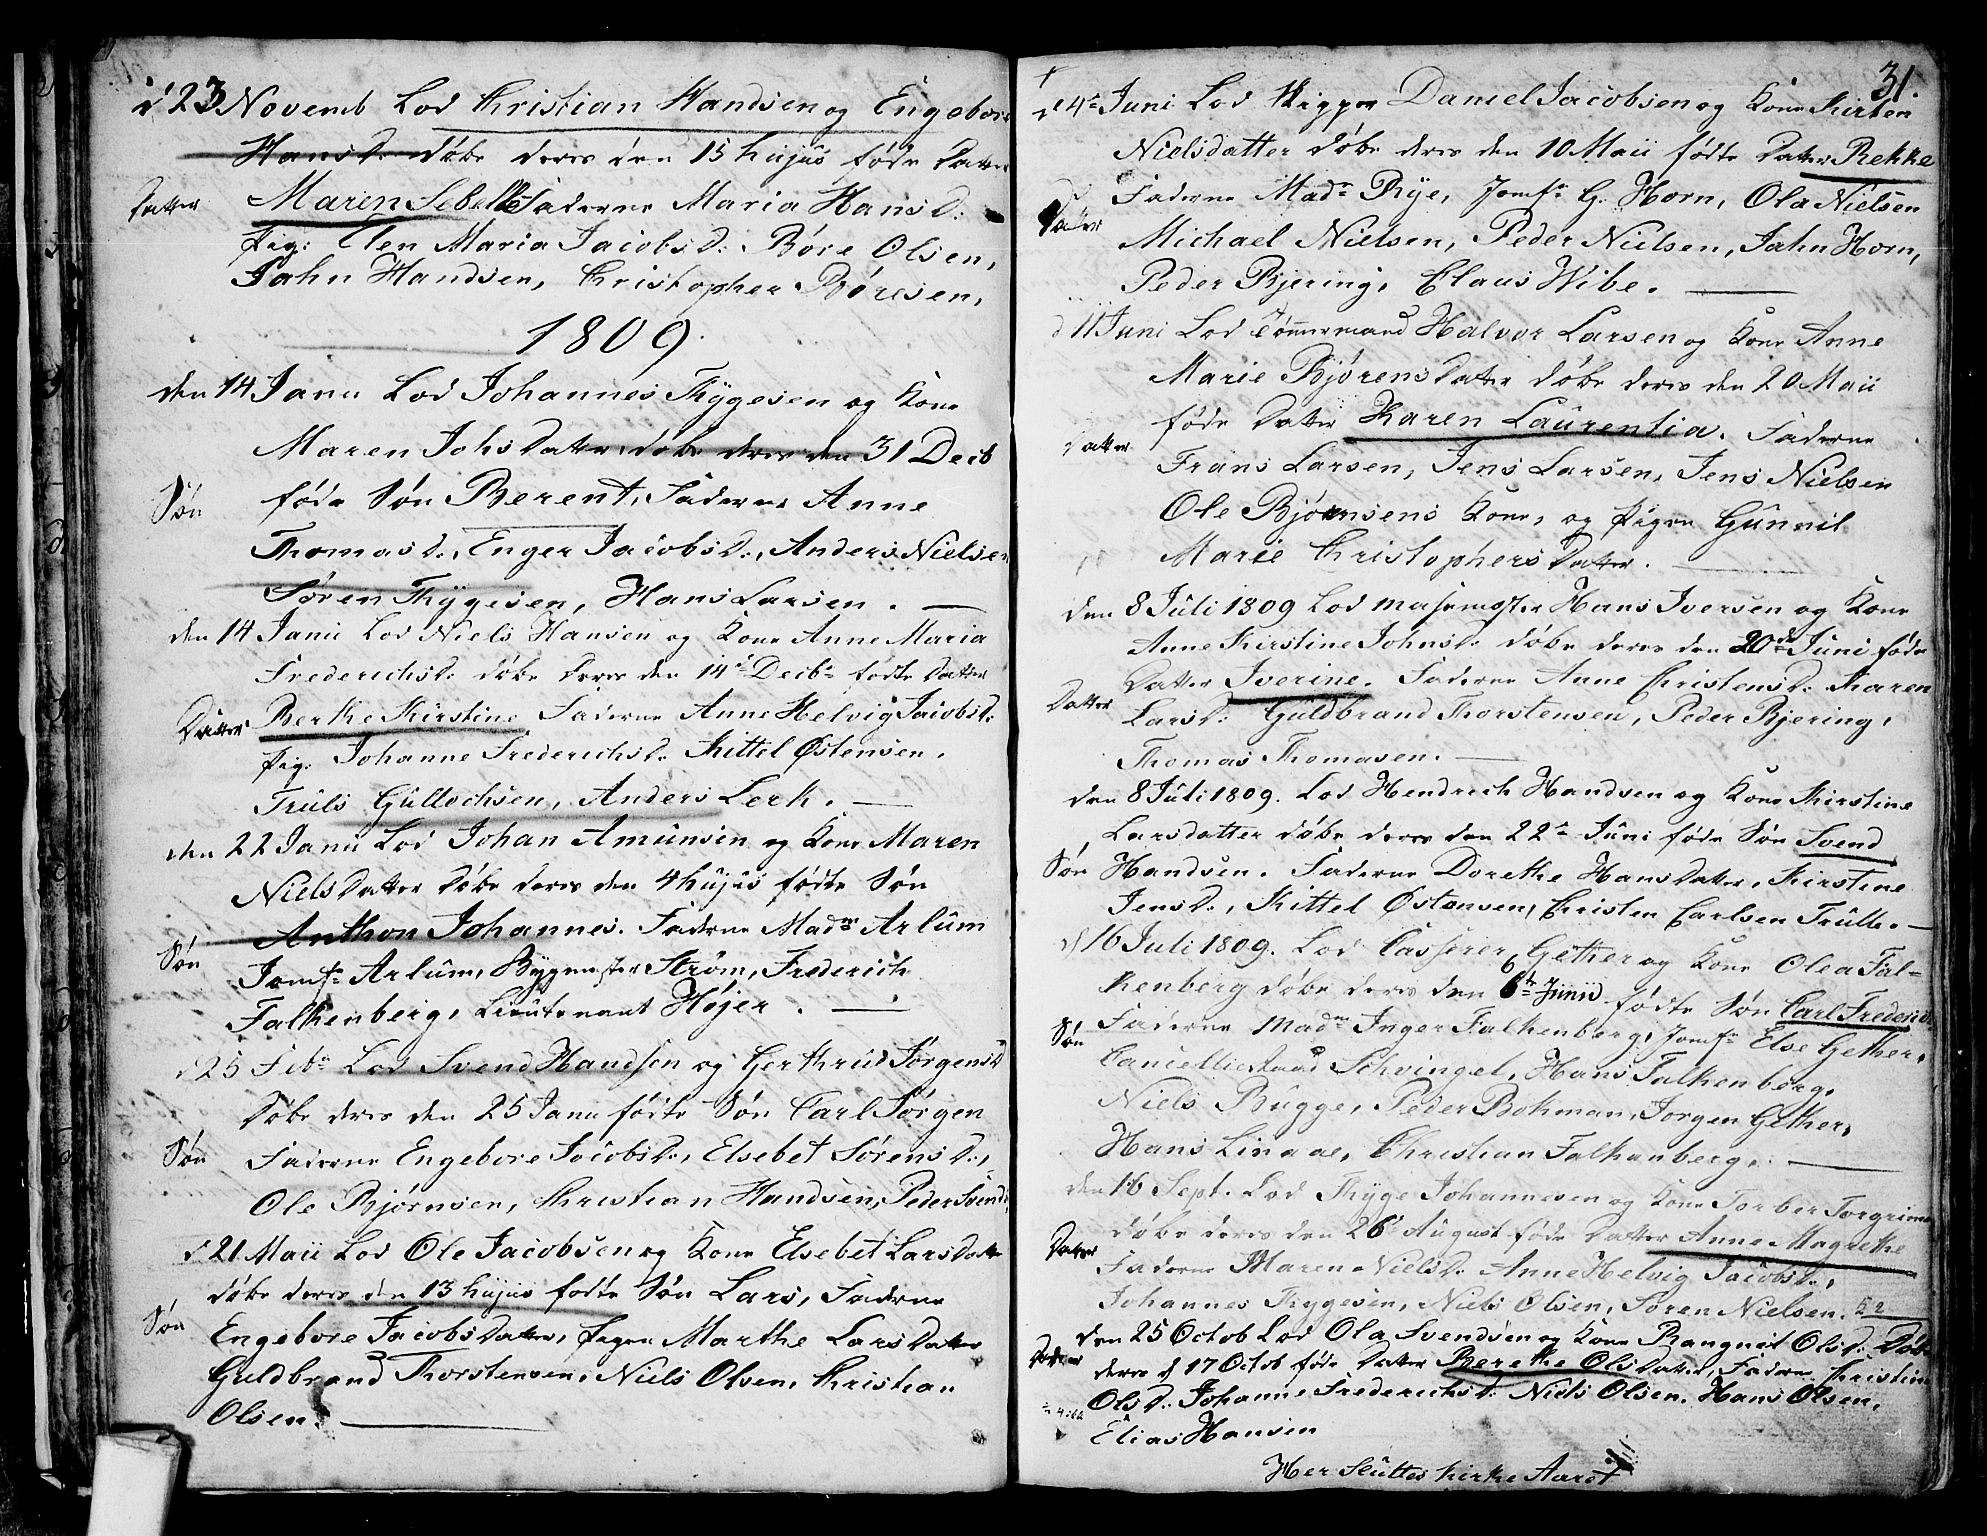 d 23 Novemb Lod Christian Handsen og Engebore
Hansd. døbe deres den 15 hujus føde Datter
Datter Maren Sebelle Fadderne Maria Hansd:
pig: Elen Maria Jacobsd: Børe Olsen,
Jahn Handsen, Christopher Børesen,
1809.
den 14 Janu Lod Johannes Thygesen og Kone
Maren JohsDatter døbe deres den 31 Decb
Søn føde Søn Berent, Fadderne Anne
Thomasd., Enger Jacobsd., Anders Nielsen
Søren Thygesen, Hans Larsen.
den 14 Janu Lod Niels Hansen og Kone Anne Maria
Frederichsd. døbe deres den 14de Decbr fødte Datter
Datter Berthe Kirstine Fadderne Anne Helvig Jacobsd:
pig: Johanne Frederichsd. Kittel Østensen.
Truls Gullochsen, Anders Lerk.
den 22 Janu Lod Johan Amunsen og Kone Maren
NielsDatter døbe deres den 4 hujus fødte Søn
Søn Anthon Johannes. Fadderne Madm Arlum
Jomfr Arlum, Bygmester Strøm, Frederich
Falkenberg, Lieutenant Højer.
d 25 Febr Lod Svend Handsen og Gerthrud Jørgensd
døbe deres den 25 Janu fødte Søn Carl Jørgen
Søn Fadderne Engebore Jacobsd., Elsebet Sørensd.,
Ole Bjørnsen, Christian Handsen, Peder Svends
d 21 Maii Lod Ole Jacobsen og Kone Elsebet LarsDatter
døbe deres den 13 hujus fødte Søn Lars, Fadderne
Søn Engebore JacobsDatter, pigen Marthe LarsDatter
Guldbrand Thorstensen, Niels Olsen, Christian
Olsen.
31.
d 4de Juni Lod Skipper Daniel Jacobsen og Kone Kirsten
Nielsdatter døbe deres den 10 Maii fødte Datter Rekke
Datter Fadderne Madm Rye, Jomfr G. Horn, Ola Nielsen
Michael Nielsen, Peder Nielsen, Jahn Horn,
Peder Bjering, Claus Wibe.
d 11 Juni Lod Tømmermand Halvor Larsen og Kone Anne
Marie BjørensDatter døbe deres den 20 Maii
Datter føde Datter Karen Laurentia. Fadderne
Frans Larsen, Jens Larsen, Jens Nielsen
Ole Bjørnsens Kone, og pigen Gunnil
Marie ChristophersDatter.
den 8 Juli 1809 Lod masemester Hans Iversen og Kone
Anne Kirstine Johnsd. døbe deres den 20de Juni føde
Datter Datter Iverine. Fadderne Anne Christensd. Karen
Larsd: Guldbrand Thorstensen, Peder Bjering,
Thomas Thomasen.
den 8 Juli 1809. Lod Hendrech Handsen og Kone Kirstine
Larsdatter døbe deres den 22de Juni føde Søn Svend
Søn Handsen. Fadderne Dorethe HansDatter, Kirstine
Jensd., Kittel Østensen, Christen Carlsen Trulle.
d 16 Juli 1809. Lod Casserer Gether og Kone Olea Fal-
kenberg døbe deres den 6te Junii fødte Søn Carl Frederich
Søn Fadderne Madm Inger Falkenberg, Jomfr Else Gether,
Cancellieraad Schvingel, Hans Falkenberg,
Niels Bugge, Peder Bohman, Jørgen Gether,
Hans Linaae, Christian Falkenberg.
den 16 Sept. Lod Thyge Johannesen og Kone Torber Torgrims
døbe deres den 26de August føde Datter Anne Magrethe
Datter Fadderne Maren Nielsd. Anne Helvig Jacobsd.,
Johannes Thygesen, Niels Olsen, Søren Nielsen. 52
den 25 Octob Lod Ola Svendsen og Kone Rangnil Olsd. døbe
Datter deres d 17 Octob føde Datter Berethe OlsDatter, Faddere Christine
Olsd: Johanne Frederichsd. Niels Olsen. Hans Olsen,
Elias Hansen
Her Sluttes Kirke Aaret